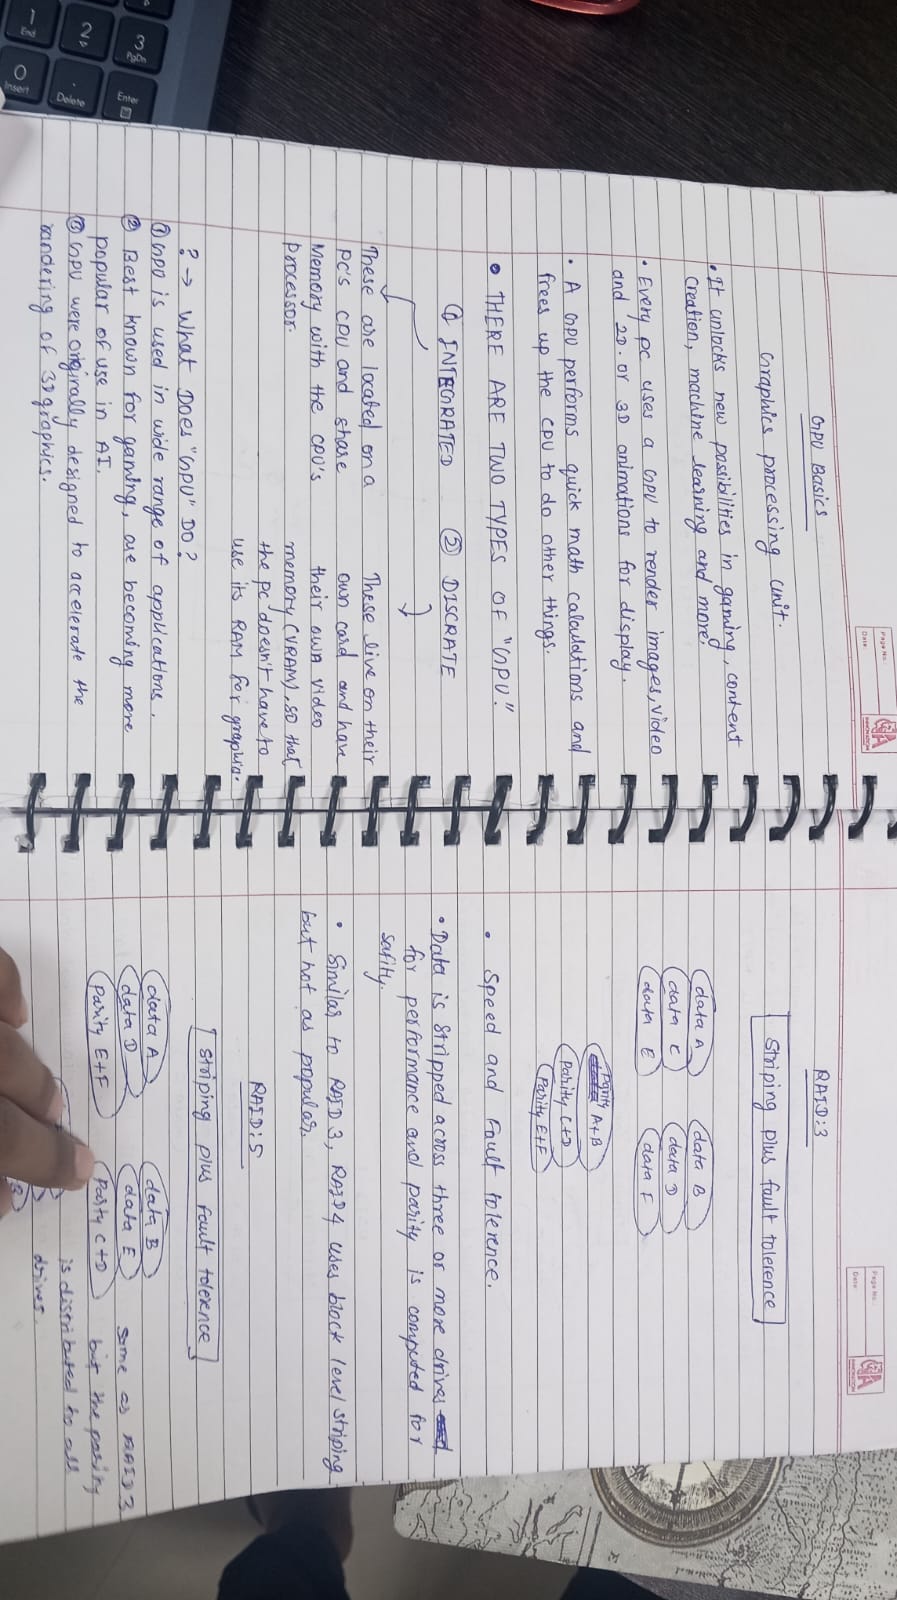 Page No.:
Date:
INNOVATION
GPU Basics
Graphics processing unit.
• It unlocks new possibilities in gaming, content
creation, machine learning and more.
• Every pc uses a GPU to render images, video
and 2D. or 3D animations for display.
• A GPU performs quick math calculations and
frees up the CPU to do other things.
• THERE ARE TWO TYPES OF "GPU"
① INTEGRATED ② DISCRATE
These are located on a
PC's CPU and share
Memory with the CPU's
Processor.
These live on their
own card and have
their own video
memory (VRAM), so that
the pc doesn't have to
use its RAM for graphic.
? → What Does "GPU" DO?
① GPU is used in wide range of applications.
② Best known for gaming, are becoming more
popular of use in AI.
③ GPU were originally designed to accelerate the
randering of 3D graphics.
Page No.:
Date:
INNOVATION
RAID:3
Striping plus fault tolerence
data A data B
data C data D
data E data F
Parity A+B
Parity C+D
Parity E+F
• Speed and Fault tolerence.
• Data is Stripped across three or more drives
for performance and parity is computed for
safity.
• Similar to RAID 3, RAID4 uses block level striping
but not as popular.
RAID:5
Striping plus fault tolerence
data A data B
data D data E
Parity E+F Parity C+D
same as RAID3
but the parity
is distributed to all
drives.
3
PgDn
Enter
2
Delete
1
End
0
Insert